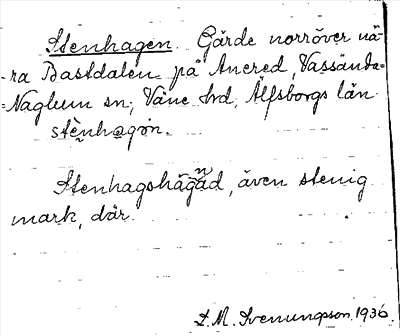 Stenhagen. Gärde norröver nä-
ra Bastdalen på Ancred, Vassända-
=Naglum sn; Väne hrd, Älfsborgs län.
stènhagən.
Stenhagshägnad, även stenig
mark, där.
D. M. Svenungsson. 1936.